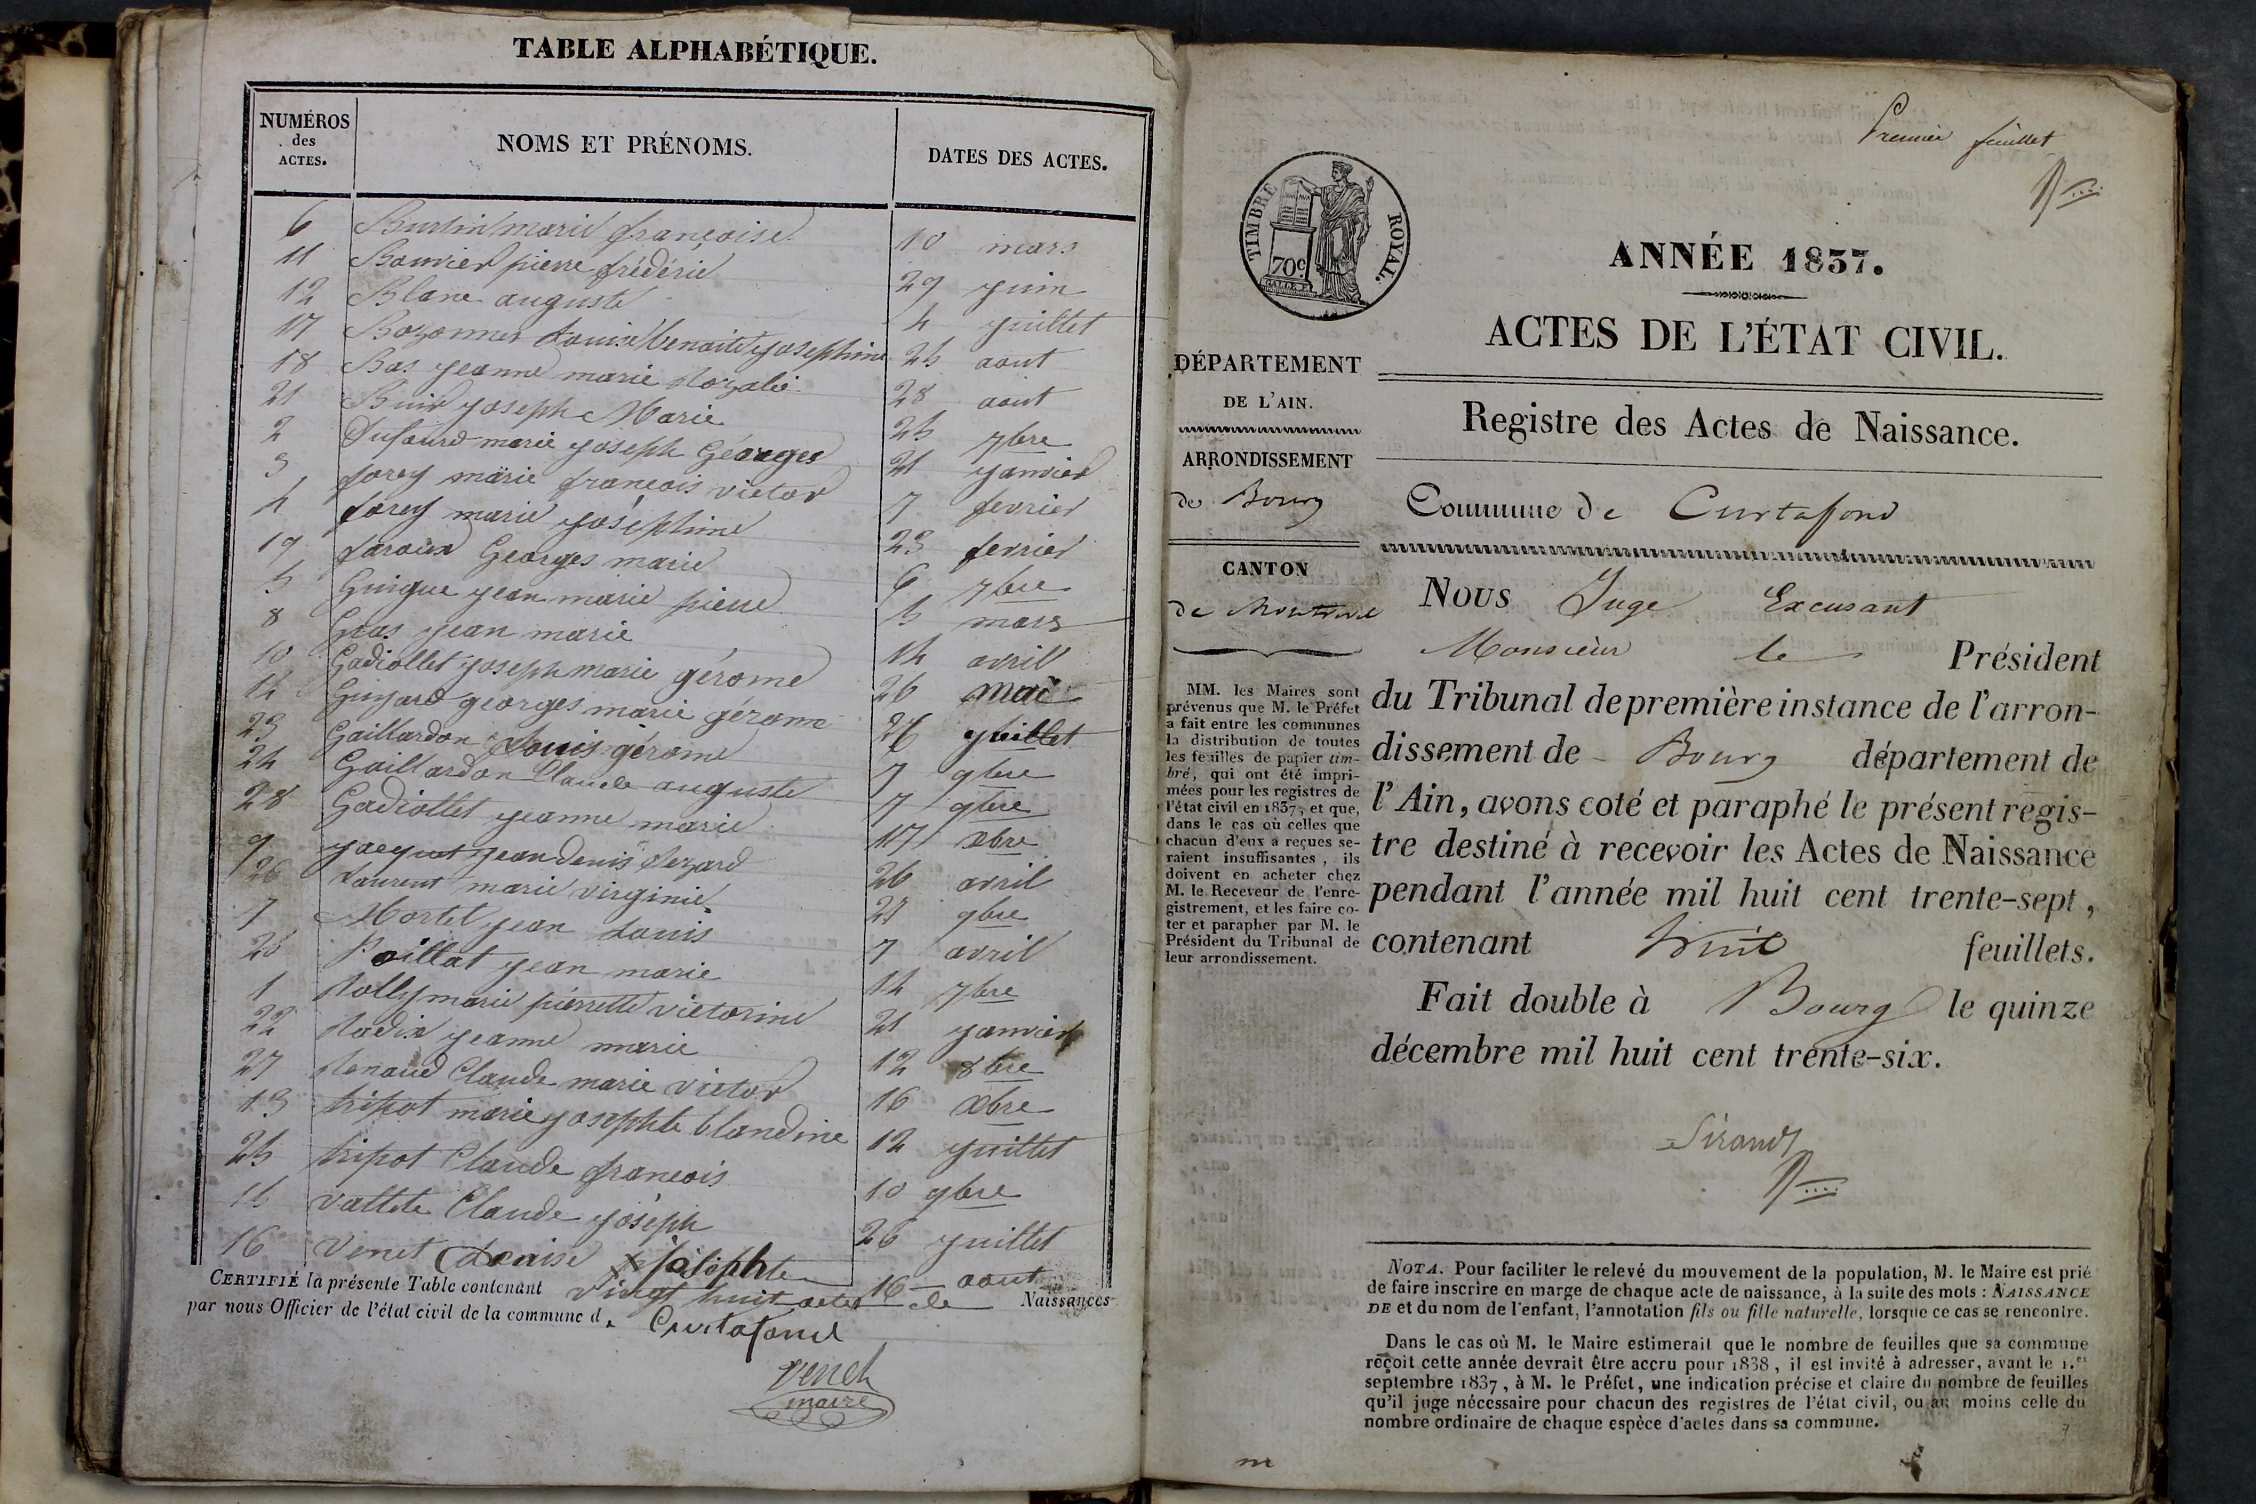 TABLE ALPHABÉTIQUE.
NUMÉROS des ACTES.
NOMS ET PRÉNOMS.
DATES DES ACTES.
6 Burtin marie françoise 10 mars
11 Bouvier pierre frédéric 29 juin
12 Blanc auguste 4 juillet
17 Bozonnet Louise benoite josephine 25 aout
18 Bas jeanne marie Rozalie 28 aout
21 Buir joseph Marie 25 7bre
2 Dufourd marie joseph Géorges 21 janvier
3 forey marie francois victor 7 fevrier
4 forey marie joséphine 23 fevrier
19 Georges marie 6 7bre
5 Guigue jean marie pierre 5 mars
8 Gras jean marie 14 avril
10 Gadiollet joseph marie gérome 26 mai
14 Guyard georges marie gérome 26 juillet
23 Gaillardon Louis gérome 7 9bre
24 Gaillardon Claude auguste 7 9bre
28 Gadiollet jeanne marie 17 xbre
9 jacquet jean denis 26 avril
26 Laurent marie virginie 27 9bre
7 Mortel jean Louis 7 avril
20 Poillat jean marie 14 7bre
1 Rolly marie pierrette victorine 21 janvier
22 Rodix jeanne marie 12 8bre
27 Renaud Claude marie victor 16 xbre
13 tripot marie josephte blandine 12 juillet
25 tripot Claude francois 10 9bre
15 vallete Claude joseph 26 juillet
16 venet Denise josephte 16 aout
CERTIFIÉ la présente Table contenant vingt huit actes de Naissances
par nous Officier de l'état civil de la commune d. Curtafond
venet
maire
Premier feuillet
TIMBRE ROYAL.
70c
ANNÉE 1837.
ACTES DE L'ÉTAT CIVIL.
Registre des Actes de Naissance.
DÉPARTEMENT
DE L'AIN.
ARRONDISSEMENT
de Bourg
CANTON
de Montrevel
MM. les Maires sont
prévenus que M. le Préfet
a fait entre les communes
la distribution de toutes
les feuilles de papier tim-
bré, qui ont été impri-
mées pour les registres de
l'état civil en 1837, et que,
dans le cas où celles que
chacun d'eux a reçues se-
raient insuffisantes, ils
doivent en acheter chez
M. le Receveur de l'enre-
gistrement, et les faire co-
ter et parapher par M. le
Président du Tribunal de
leur arrondissement.
Commune de Curtafond
Nous Juge Excusant
Monsieur le Président
du Tribunal de première instance de l'arron-
dissement de Bourg département de
l'Ain, avons coté et paraphé le présent regis-
tre destiné à recevoir les Actes de Naissance
pendant l'année mil huit cent trente-sept,
contenant huit feuillets.
Fait double à Bourg le quinze
décembre mil huit cent trente-six.
Sirand
NOTA. Pour faciliter le relevé du mouvement de la population, M. le Maire est prié
de faire inscrire en marge de chaque acte de naissance, à la suite des mots : NAISSANCE
DE et du nom de l'enfant, l'annotation fils ou fille naturelle, lorsque ce cas se rencontre.
Dans le cas où M. le Maire estimerait que le nombre de feuilles que sa commune
reçoit cette année devrait être accru pour 1838, il est invité à adresser, avant le 1.er
septembre 1837, à M. le Préfet, une indication précise et claire du nombre de feuilles
qu'il juge nécessaire pour chacun des registres de l'état civil, ou au moins celle du
nombre ordinaire de chaque espèce d'actes dans sa commune.
m